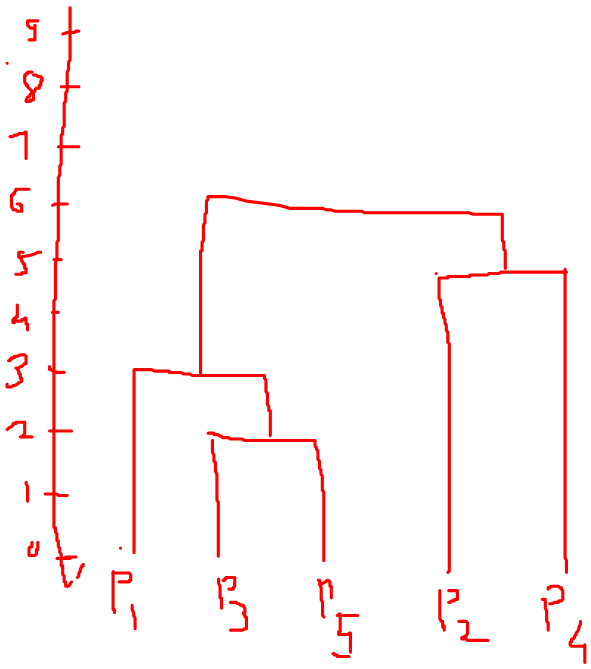 9
8
7
6
5
4
3
2
1
0
P1 P3 P5 P2 P4